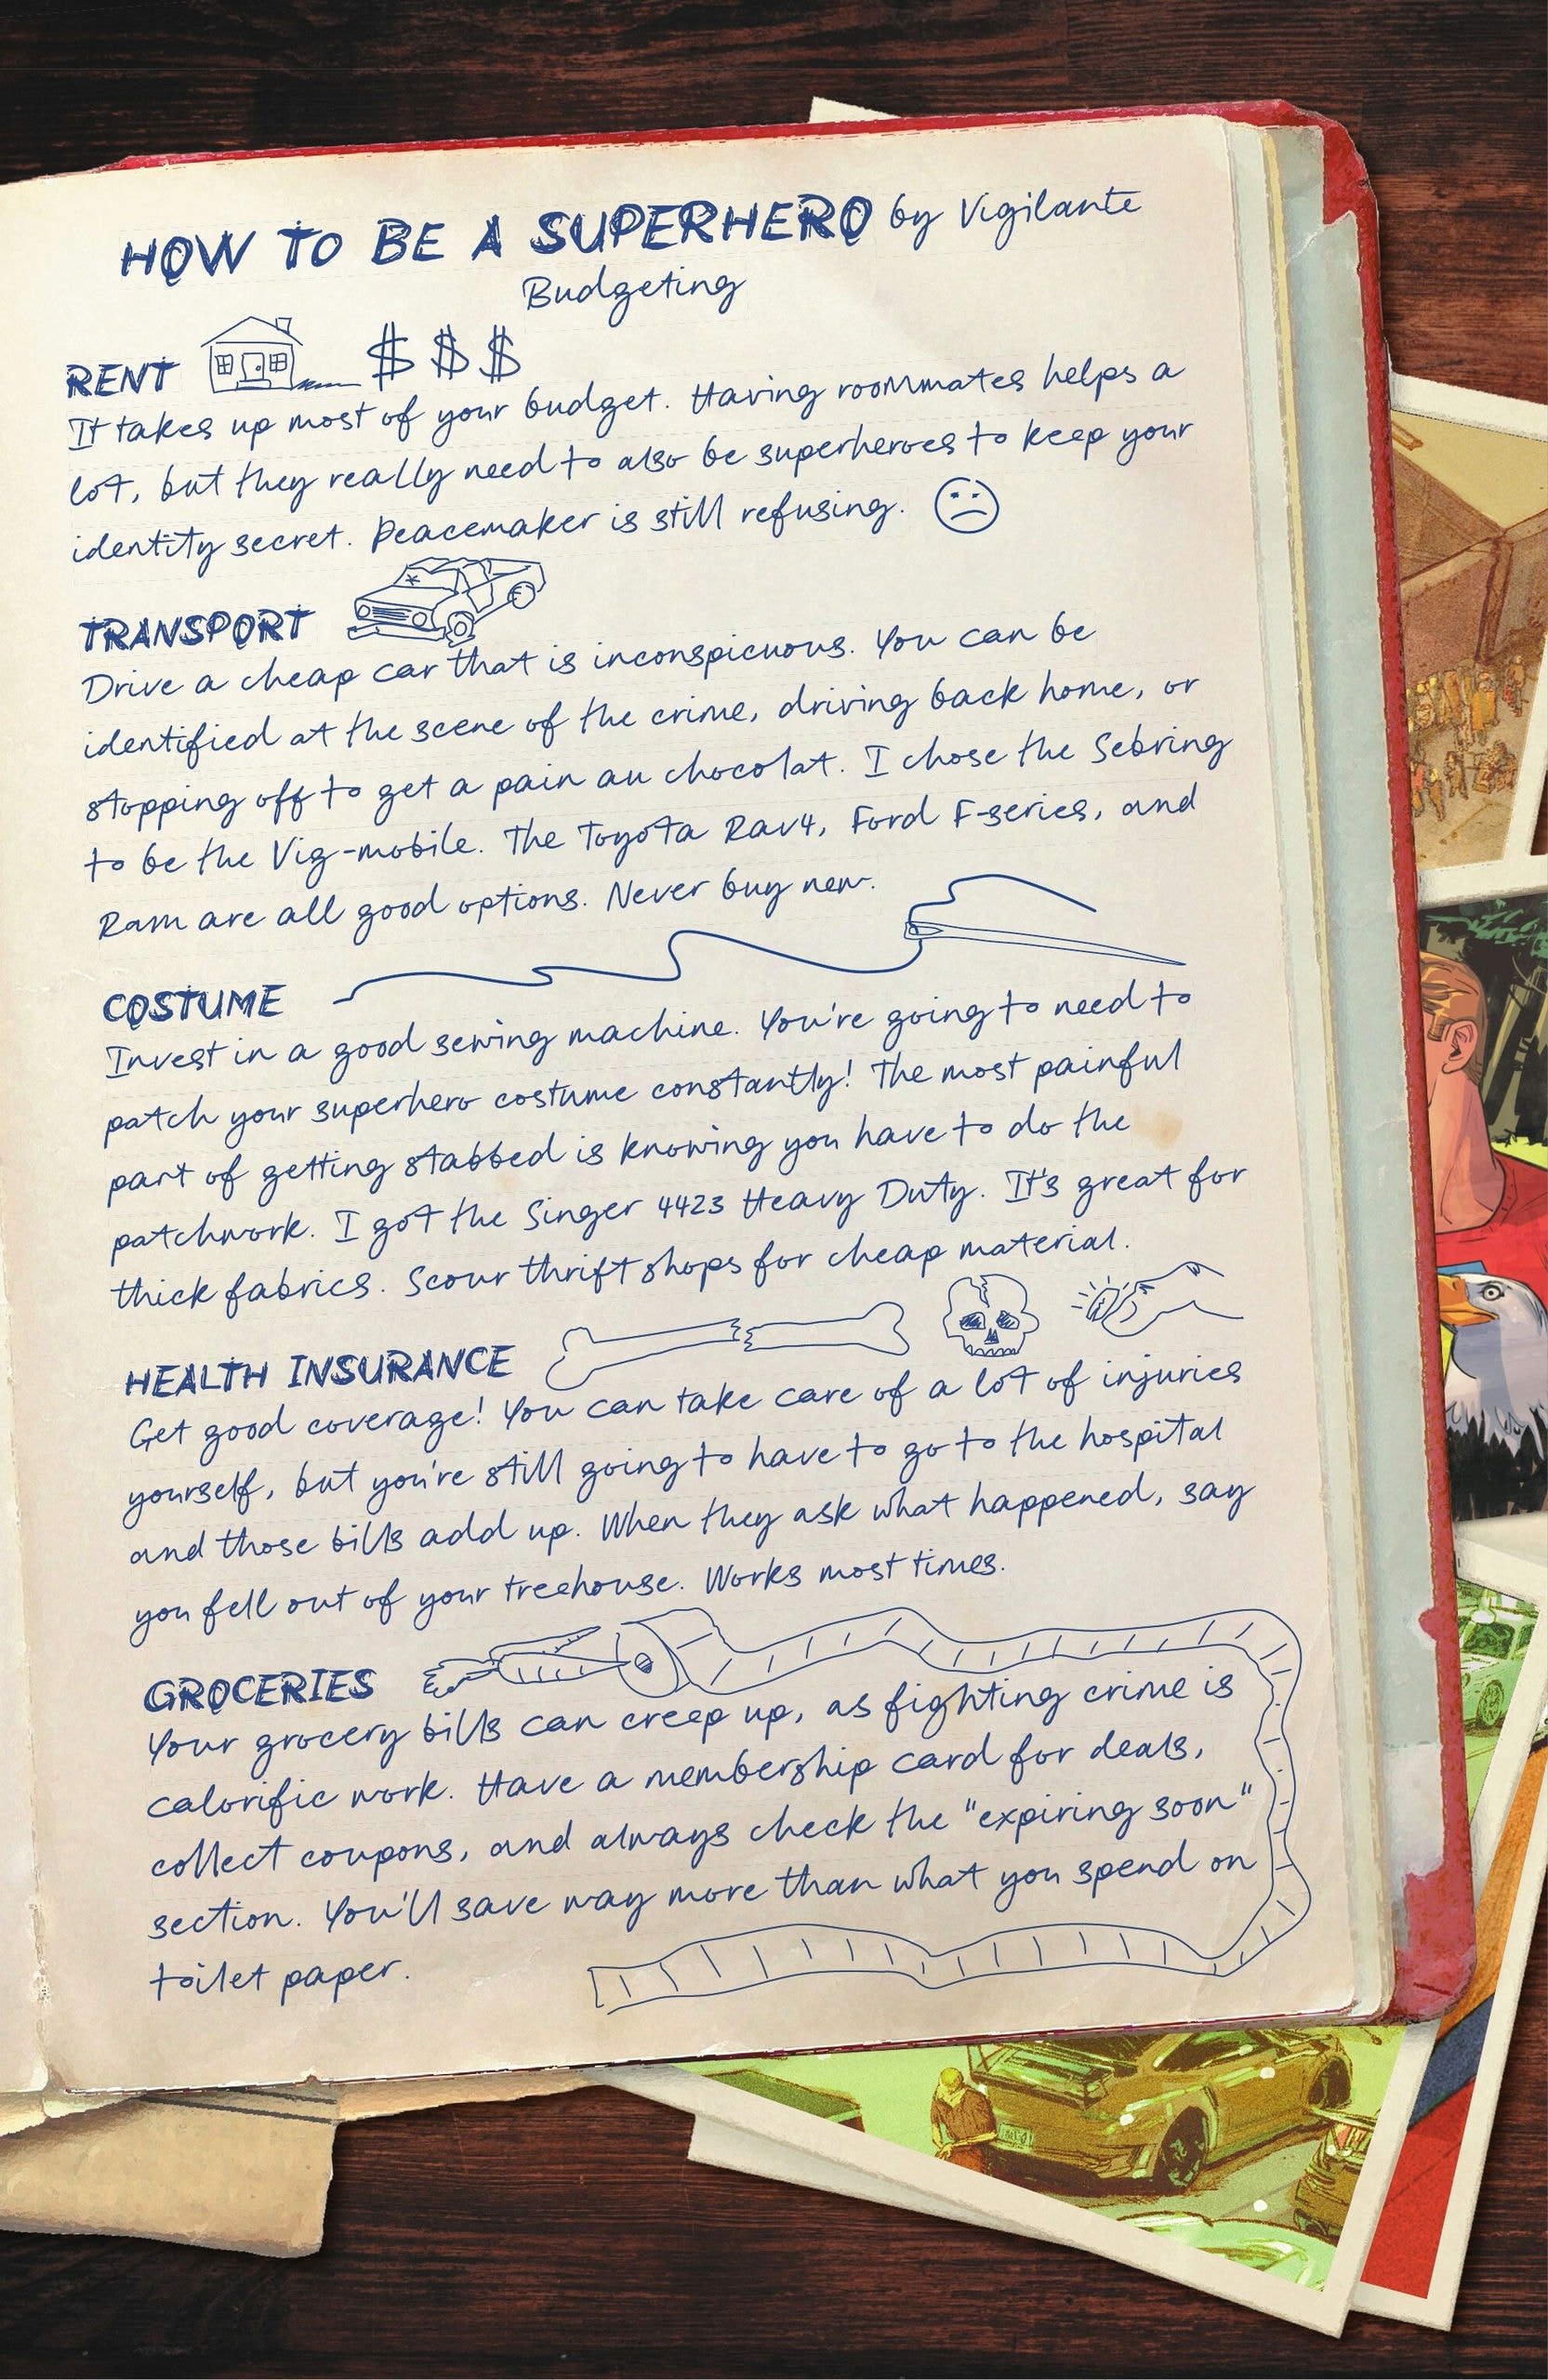 HOW TO BE A SUPERHERO by Vigilante
Budgeting
RENT $ $ $
It takes up most of your budget. Having roommates helps a
lot, but they really need to also be superheroes to keep your
identity secret. Peacemaker is still refusing.
TRANSPORT
Drive a cheap car that is inconspicuous. You can be
identified at the scene of the crime, driving back home, or
stopping off to get a pain au chocolat. I chose the Sebring
to be the Vig-mobile. The Toyota Rav4, Ford F-series, and
Ram are all good options. Never buy new.
COSTUME
Invest in a good sewing machine. You're going to need to
patch your superhero costume constantly! The most painful
part of getting stabbed is knowing you have to do the
patchwork. I got the Singer 4423 Heavy Duty. It's great for
thick fabrics. Scour thrift shops for cheap material.
HEALTH INSURANCE
Get good coverage! You can take care of a lot of injuries
yourself, but you're still going to have to go to the hospital
and those bills add up. When they ask what happened, say
you fell out of your treehouse. Works most times.
GROCERIES
Your grocery bills can creep up, as fighting crime is
calorific work. Have a membership card for deals,
collect coupons, and always check the "expiring soon"
section. You'll save way more than what you spend on
toilet paper.